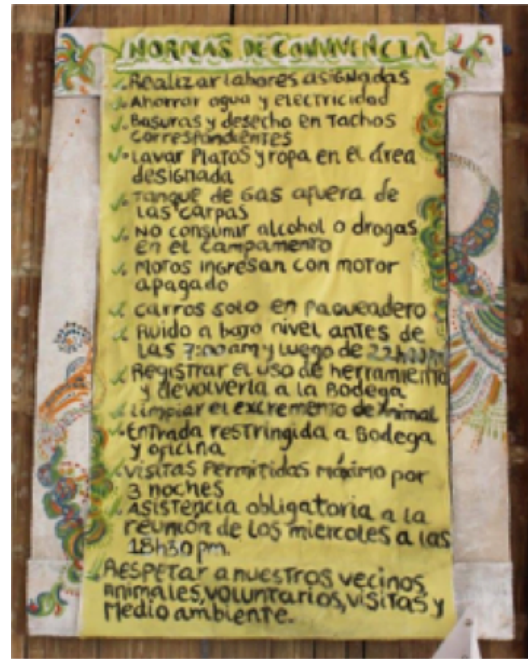 NORMAS DE CONVIVENCIA
Realizar labores asignadas
Ahorrar agua y electricidad
Basuras y desecho en Tachos
correspondientes
Lavar Platos y ropa en el área
designada
Tanque de Gas afuera de
las carpas
No consumir alcohol o drogas
en el campamento
Motos ingresan con motor
apagado
Carros solo en paqueadero
Ruido a bajo nivel antes de
las 7:00am y luego de
Registrar el uso de herramienta
y devolverla a la Bodega
Limpiar el excremento de Animal
Entrada restringida a Bodega
y oficina
Visitas Permitidas máximo por
3 noches
Asistencia obligatoria a la
reunión de los miercoles a las
18h30 pm.
Respetar a nuestros vecinos,
Animales, voluntarios, visitas y
Medio ambiente.